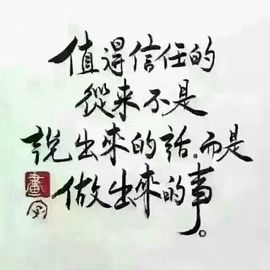 值得信任的
從来不是
説出來的話,而是
做出來的事。
畫字